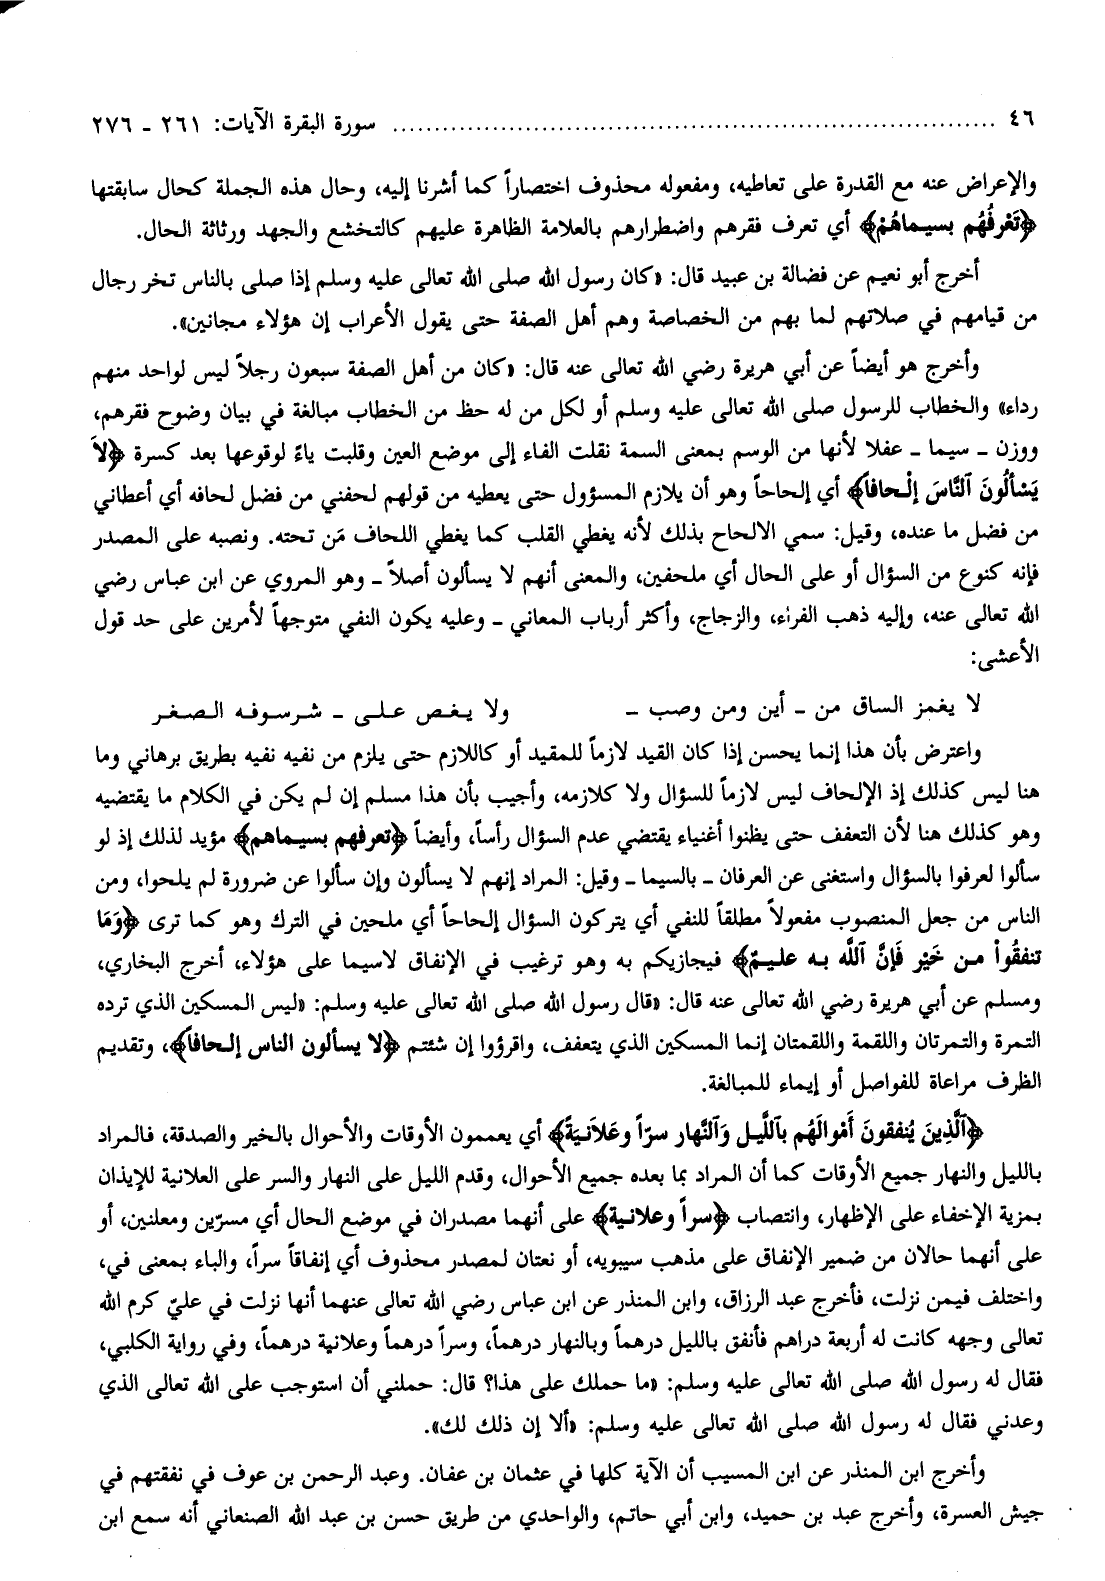 ٤٦ ........................................ سورة البقرة الآيات: ٢٦١ - ٢٧٦
والإعراض عنه مع القدرة على تعاطيه، ومفعوله محذوف اختصاراً كما أشرنا إليه، وحال هذه الجملة كحال سابقتها
﴿تَعْرِفُهُم بسيماهُمْ﴾ أي تعرف فقرهم واضطرارهم بالعلامة الظاهرة عليهم كالتخشع والجهد ورثاثة الحال.
أخرج أبو نعيم عن فضالة بن عبيد قال: «كان رسول الله صلى الله تعالى عليه وسلم إذا صلى بالناس تخر رجال
من قيامهم في صلاتهم لما بهم من الخصاصة وهم أهل الصفة حتى يقول الأعراب إن هؤلاء مجانين».
وأخرج هو أيضاً عن أبي هريرة رضي الله تعالى عنه قال: «كان من أهل الصفة سبعون رجلاً ليس لواحد منهم
رداء» والخطاب للرسول صلى الله تعالى عليه وسلم أو لكل من له حظ من الخطاب مبالغة في بيان وضوح فقرهم،
ووزن ـ سيما ـ عفلا لأنها من الوسم بمعنى السمة نقلت الفاء إلى موضع العين وقلبت ياءً لوقوعها بعد كسرة ﴿لاَ
يَسْألُونَ ٱلنَّاسَ إلْحافاً﴾ أي إلحاحاً وهو أن يلازم المسؤول حتى يعطيه من قولهم لحفني من فضل لحافه أي أعطاني
من فضل ما عنده، وقيل: سمي الالحاح بذلك لأنه يغطي القلب كما يغطي اللحاف مَن تحته. ونصبه على المصدر
فإنه كنوع من السؤال أو على الحال أي ملحفين، والمعنى أنهم لا يسألون أصلاً ـ وهو المروي عن ابن عباس رضي
الله تعالى عنه، وإليه ذهب الفراء، والزجاج، وأكثر أرباب المعاني ـ وعليه يكون النفي متوجهاً لأمرين على حد قول
الأعشى:
لا يغمز الساق من ـ أين ومن وصب ـ ولا يـغـص عـلـى ـ شرسوفه الـصـغـر
واعترض بأن هذا إنما يحسن إذا كان القيد لازماً للمقيد أو كاللازم حتى يلزم من نفيه نفيه بطريق برهاني وما
هنا ليس كذلك إذ الإلحاف ليس لازماً للسؤال ولا كلازمه، وأجيب بأن هذا مسلم إن لم يكن في الكلام ما يقتضيه
وهو كذلك هنا لأن التعفف حتى يظنوا أغنياء يقتضي عدم السؤال رأساً، وأيضاً ﴿تعرفهم بسيماهم﴾ مؤيد لذلك إذ لو
سألوا لعرفوا بالسؤال واستغنى عن العرفان ـ بالسيما ـ وقيل: المراد إنهم لا يسألون وإن سألوا عن ضرورة لم يلحوا، ومن
الناس من جعل المنصوب مفعولاً مطلقاً للنفي أي يتركون السؤال إلحاحاً أي ملحين في الترك وهو كما ترى ﴿وَمَا
تنفقُواْ مـن خَيْر فَإنَّ ٱللَّه بـه علـيـمٌ﴾ فيجازيكم به وهو ترغيب في الإنفاق لاسيما على هؤلاء، أخرج البخاري،
ومسلم عن أبي هريرة رضي الله تعالى عنه قال: «قال رسول الله صلى الله تعالى عليه وسلم: «ليس المسكين الذي ترده
التمرة والتمرتان واللقمة واللقمتان إنما المسكين الذي يتعفف، واقرؤوا إن شئتم ﴿لا يسألون الناس إلحافاً﴾، وتقديم
الظرف مراعاة للفواصل أو إيماء للمبالغة.
﴿ٱلَّذِينَ يُنفقونَ أَمْوالَهُم بٱللَّيـل وَٱلنَّهار سرّاً وعَلاَنيَةً﴾ أي يعممون الأوقات والأحوال بالخير والصدقة، فالمراد
بالليل والنهار جميع الأوقات كما أن المراد بما بعده جميع الأحوال، وقدم الليل على النهار والسر على العلانية للإيذان
بمزية الإخفاء على الإظهار، وانتصاب ﴿سراً وعلانية﴾ على أنهما مصدران في موضع الحال أي مسرّين ومعلنين، أو
على أنهما حالان من ضمير الإنفاق على مذهب سيبويه، أو نعتان لمصدر محذوف أي إنفاقاً سراً، والباء بمعنى في،
واختلف فيمن نزلت، فأخرج عبد الرزاق، وابن المنذر عن ابن عباس رضي الله تعالى عنهما أنها نزلت في عليّ كرم الله
تعالى وجهه كانت له أربعة دراهم فأنفق بالليل درهماً وبالنهار درهماً، وسراً درهماً وعلانية درهماً، وفي رواية الكلبي،
فقال له رسول الله صلى الله تعالى عليه وسلم: «ما حملك على هذا؟ قال: حملني أن استوجب على الله تعالى الذي
وعدني فقال له رسول الله صلى الله تعالى عليه وسلم: «ألا إن ذلك لك».
وأخرج ابن المنذر عن ابن المسيب أن الآية كلها في عثمان بن عفان. وعبد الرحمن بن عوف في نفقتهم في
جيش العسرة، وأخرج عبد بن حميد، وابن أبي حاتم، والواحدي من طريق حسن بن عبد الله الصنعاني أنه سمع ابن